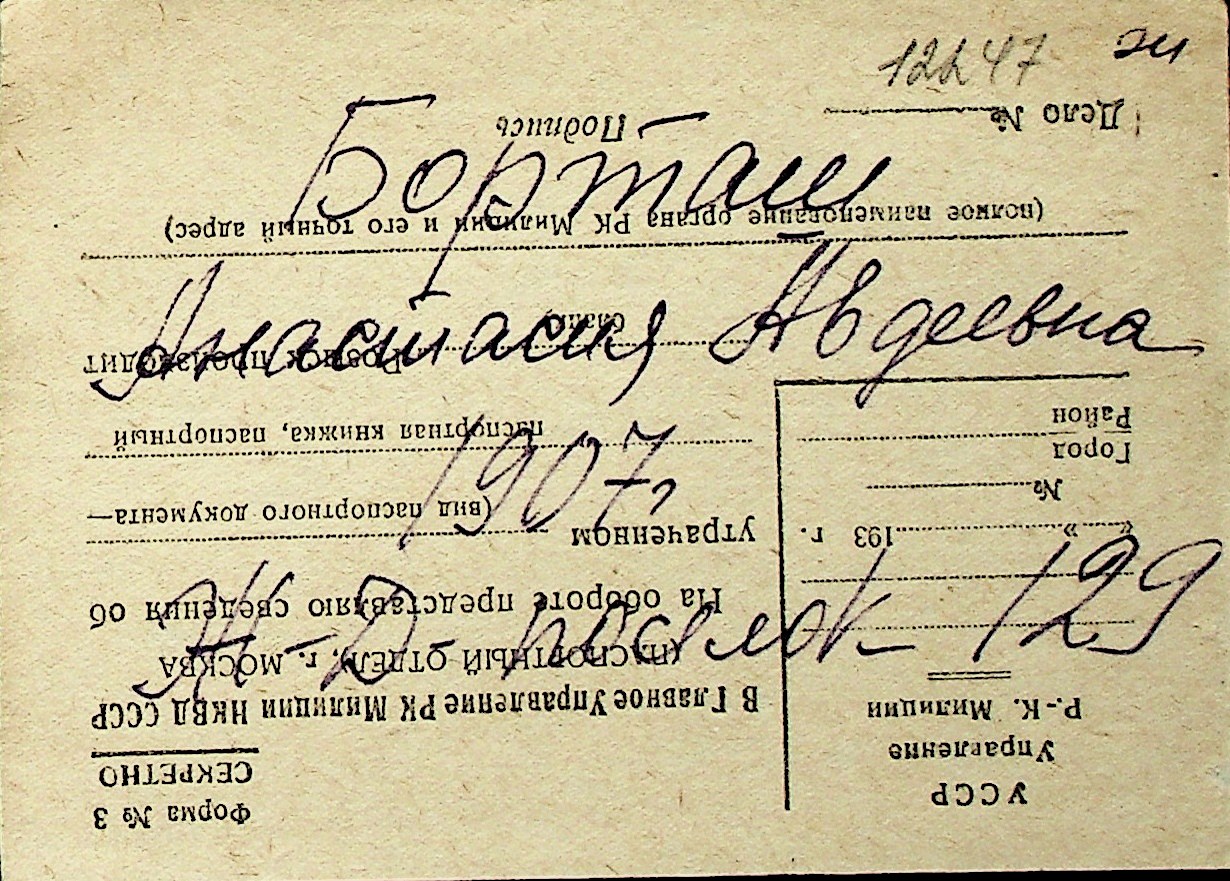 12247 эи
Борташ
Анастасия Авдеевна
1907г
Ж-Д- поселок 129
УССР
Управление
Р.-К. Милиции
« » 193 г.
№
Город
Район
Форма № 3
СЕКРЕТНО
В Главное Управление РК Милиции НКВД СССР
(ПАСПОРТНЫЙ ОТДЕЛ) г. МОСКВА
На обороте представляю сведения об
утраченном
(вид паспортного документа—
паспортная книжка, паспортный
бланк)
Розыск производит
(полное наименование органа РК Милиции и его точный адрес)
Дело №
Подпись